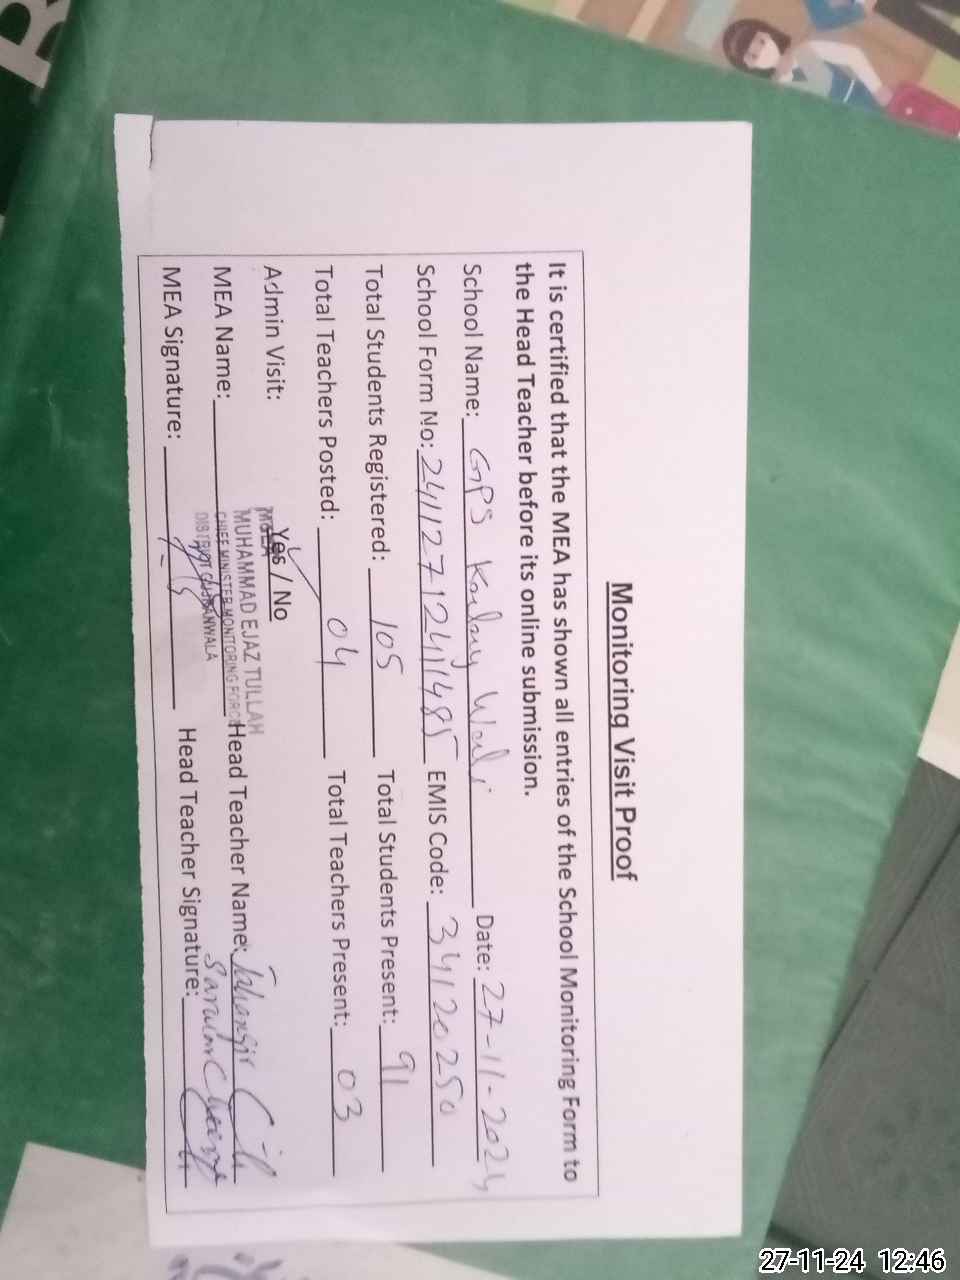 Monitoring Visit Proof
It is certified that the MEA has shown all entries of the School Monitoring Form to
the Head Teacher before its online submission.
School Name: GPS Wali Date: 27-11-2024
School Form No: 24112712411485 EMIS Code: 34120250
Total Students Registered: 105 Total Students Present: 91
Total Teachers Posted: 04 Total Teachers Present: 03
Admin Visit: Yes / No
MEA Name: MUHAMMAD EJAZ TULLAH Head Teacher Name: Jahangir
CHIEF MINISTER MONITORING FORCE
DISTRICT GUJRANWALA
MEA Signature: Head Teacher Signature:
27-11-24 12:46